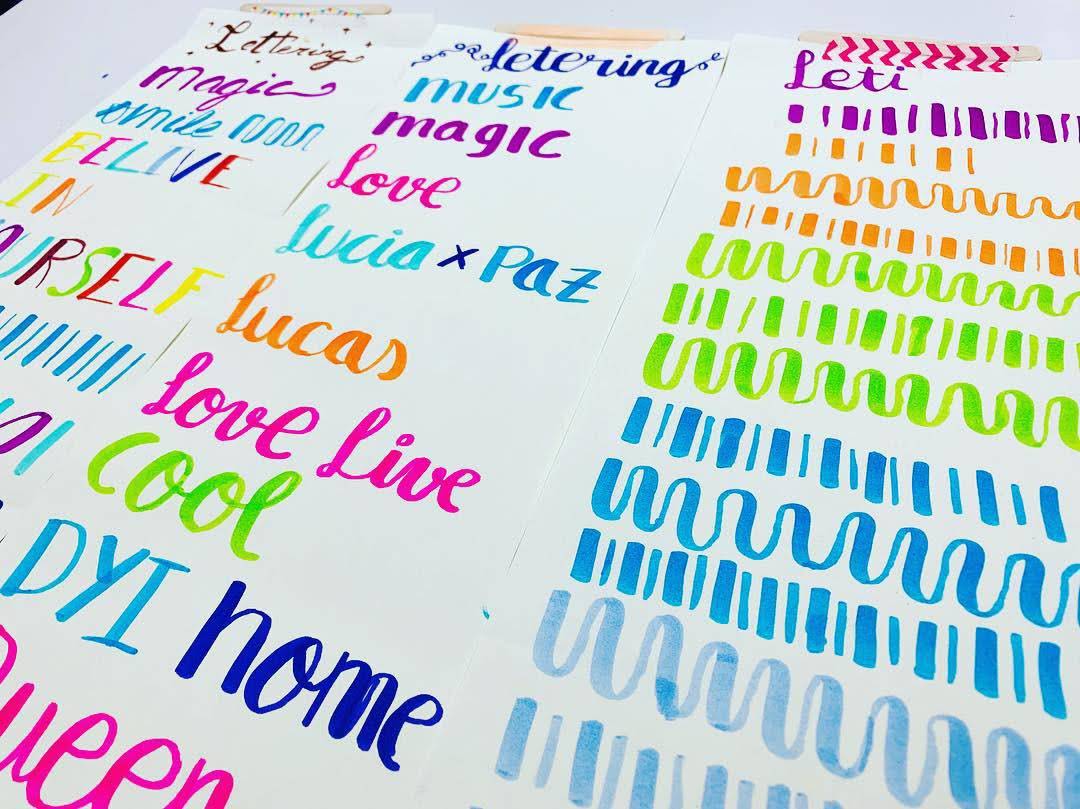 Lettering
magic
smile
BELIVE
IN
YOURSELF
letering
MUSIC
magic
Love
Lucia x PAZ
Lucas
Love Live
cool
DYI home
Queen
Leti